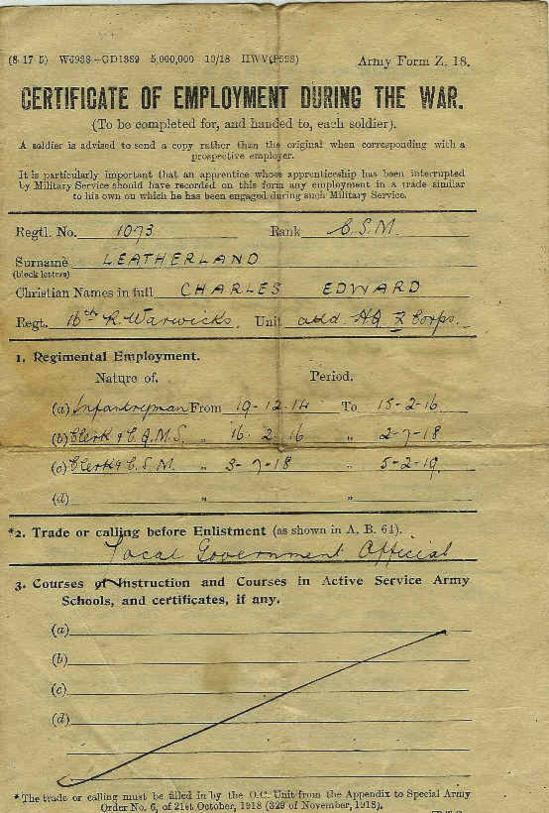 (8 17 5) W6938—GD1389 5,000,000 10/18 HWV(P593) Army Form Z. 18.
CERTIFICATE OF EMPLOYMENT DURING THE WAR.
(To be completed for, and handed to, each soldier).
A soldier is advised to send a copy rather than the original when corresponding with a
prospective employer.
It is particularly important that an apprentice whose apprenticeship has been interrupted
by Military Service should have recorded on this form any employment in a trade similar
to his own on which he has been engaged during such Military Service.
Regtl. No. 1073 Rank C.S.M.
Surname LEATHERLAND
(block letters)
Christian Names in full CHARLES EDWARD
Regt. 16th R. Warwicks. Unit attd. HQ Corps.
1. Regimental Employment.
Nature of. Period.
(a) Infantryman From 19-12-14 To 15-2-16.
(b) Clerk & C.Q.M.S. „ 16-2-16 „ 2-7-18
(c) Clerk & C.S.M. „ 3-7-18 „ 5-2-19.
(d) „ „
*2. Trade or calling before Enlistment (as shown in A. B. 64).
Local Government Official
3. Courses of Instruction and Courses in Active Service Army
Schools, and certificates, if any.
(a)
(b)
(c)
(d)
*The trade or calling must be filled in by the O.C. Unit from the Appendix to Special Army
Order No. 6, of 21st October, 1918 (329 of November, 1918).